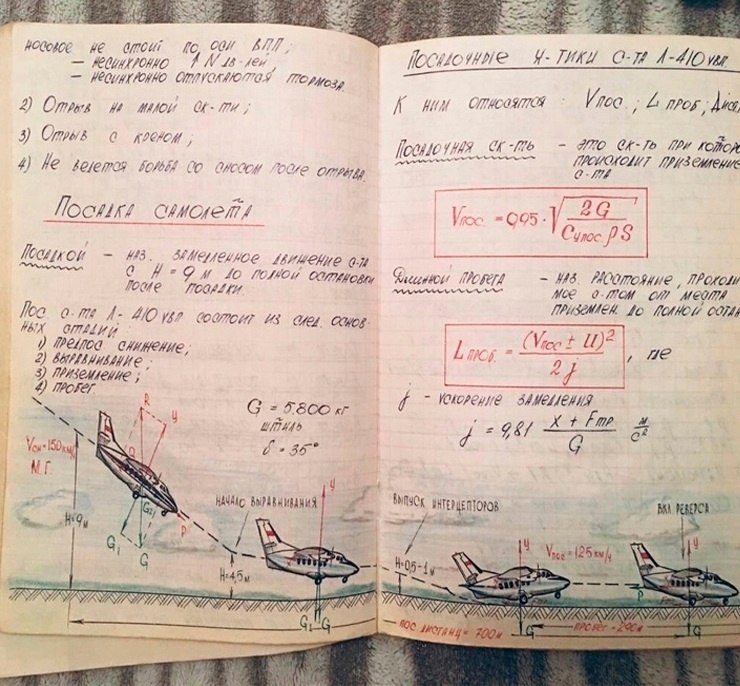 носовое не стоит по оси ВПП;
– несинхронно ↑ N дв-лей;
– несинхронно отпускаются тормоза.
2) Отрыв на малой ск-ти;
3) Отрыв с креном;
4) Не ведется борьба со сносом после отрыва.
Посадка самолета
Посадкой – наз. замедленное движение с-та
с H = 9 м до полной остановки
после посадки.
Пос с-та Л-410 увп состоит из след. основ-
ных стадий:
1) предпос снижение;
2) выравнивание;
3) приземление;
4) пробег.
G = 5.800 кг
штиль
δ = 35°
R
У
Vсн = 150 км/ч
М.Г.
Q
G2
P
G1
G
H = 9 м
начало выравнивания
H = 4,5 м
У
G1
G
Посадочные х-тики с-та Л-410 увп
К ним относятся: Vпос.; L проб; Дися
Посадочная ск-ть – это ск-ть при которо
происходит приземление
с-та
Vпос. = 0,95 · √(2G / Cупос. ρ S)
Длинной пробега – наз. расстояние, проходи
мое с-том от места
приземлен. до полной остан
Lпроб. = (Vпос ± U)² / 2j , где
j – ускорение замедления
j = 9,81 (X + Fтр) / G м/с²
выпуск интерцепторов
H = 0,5-1 м
У
Vпос = 125 км/ч
вкл реверса
У
P
G
G
пос. дистанц = 700м
пробег = 290м